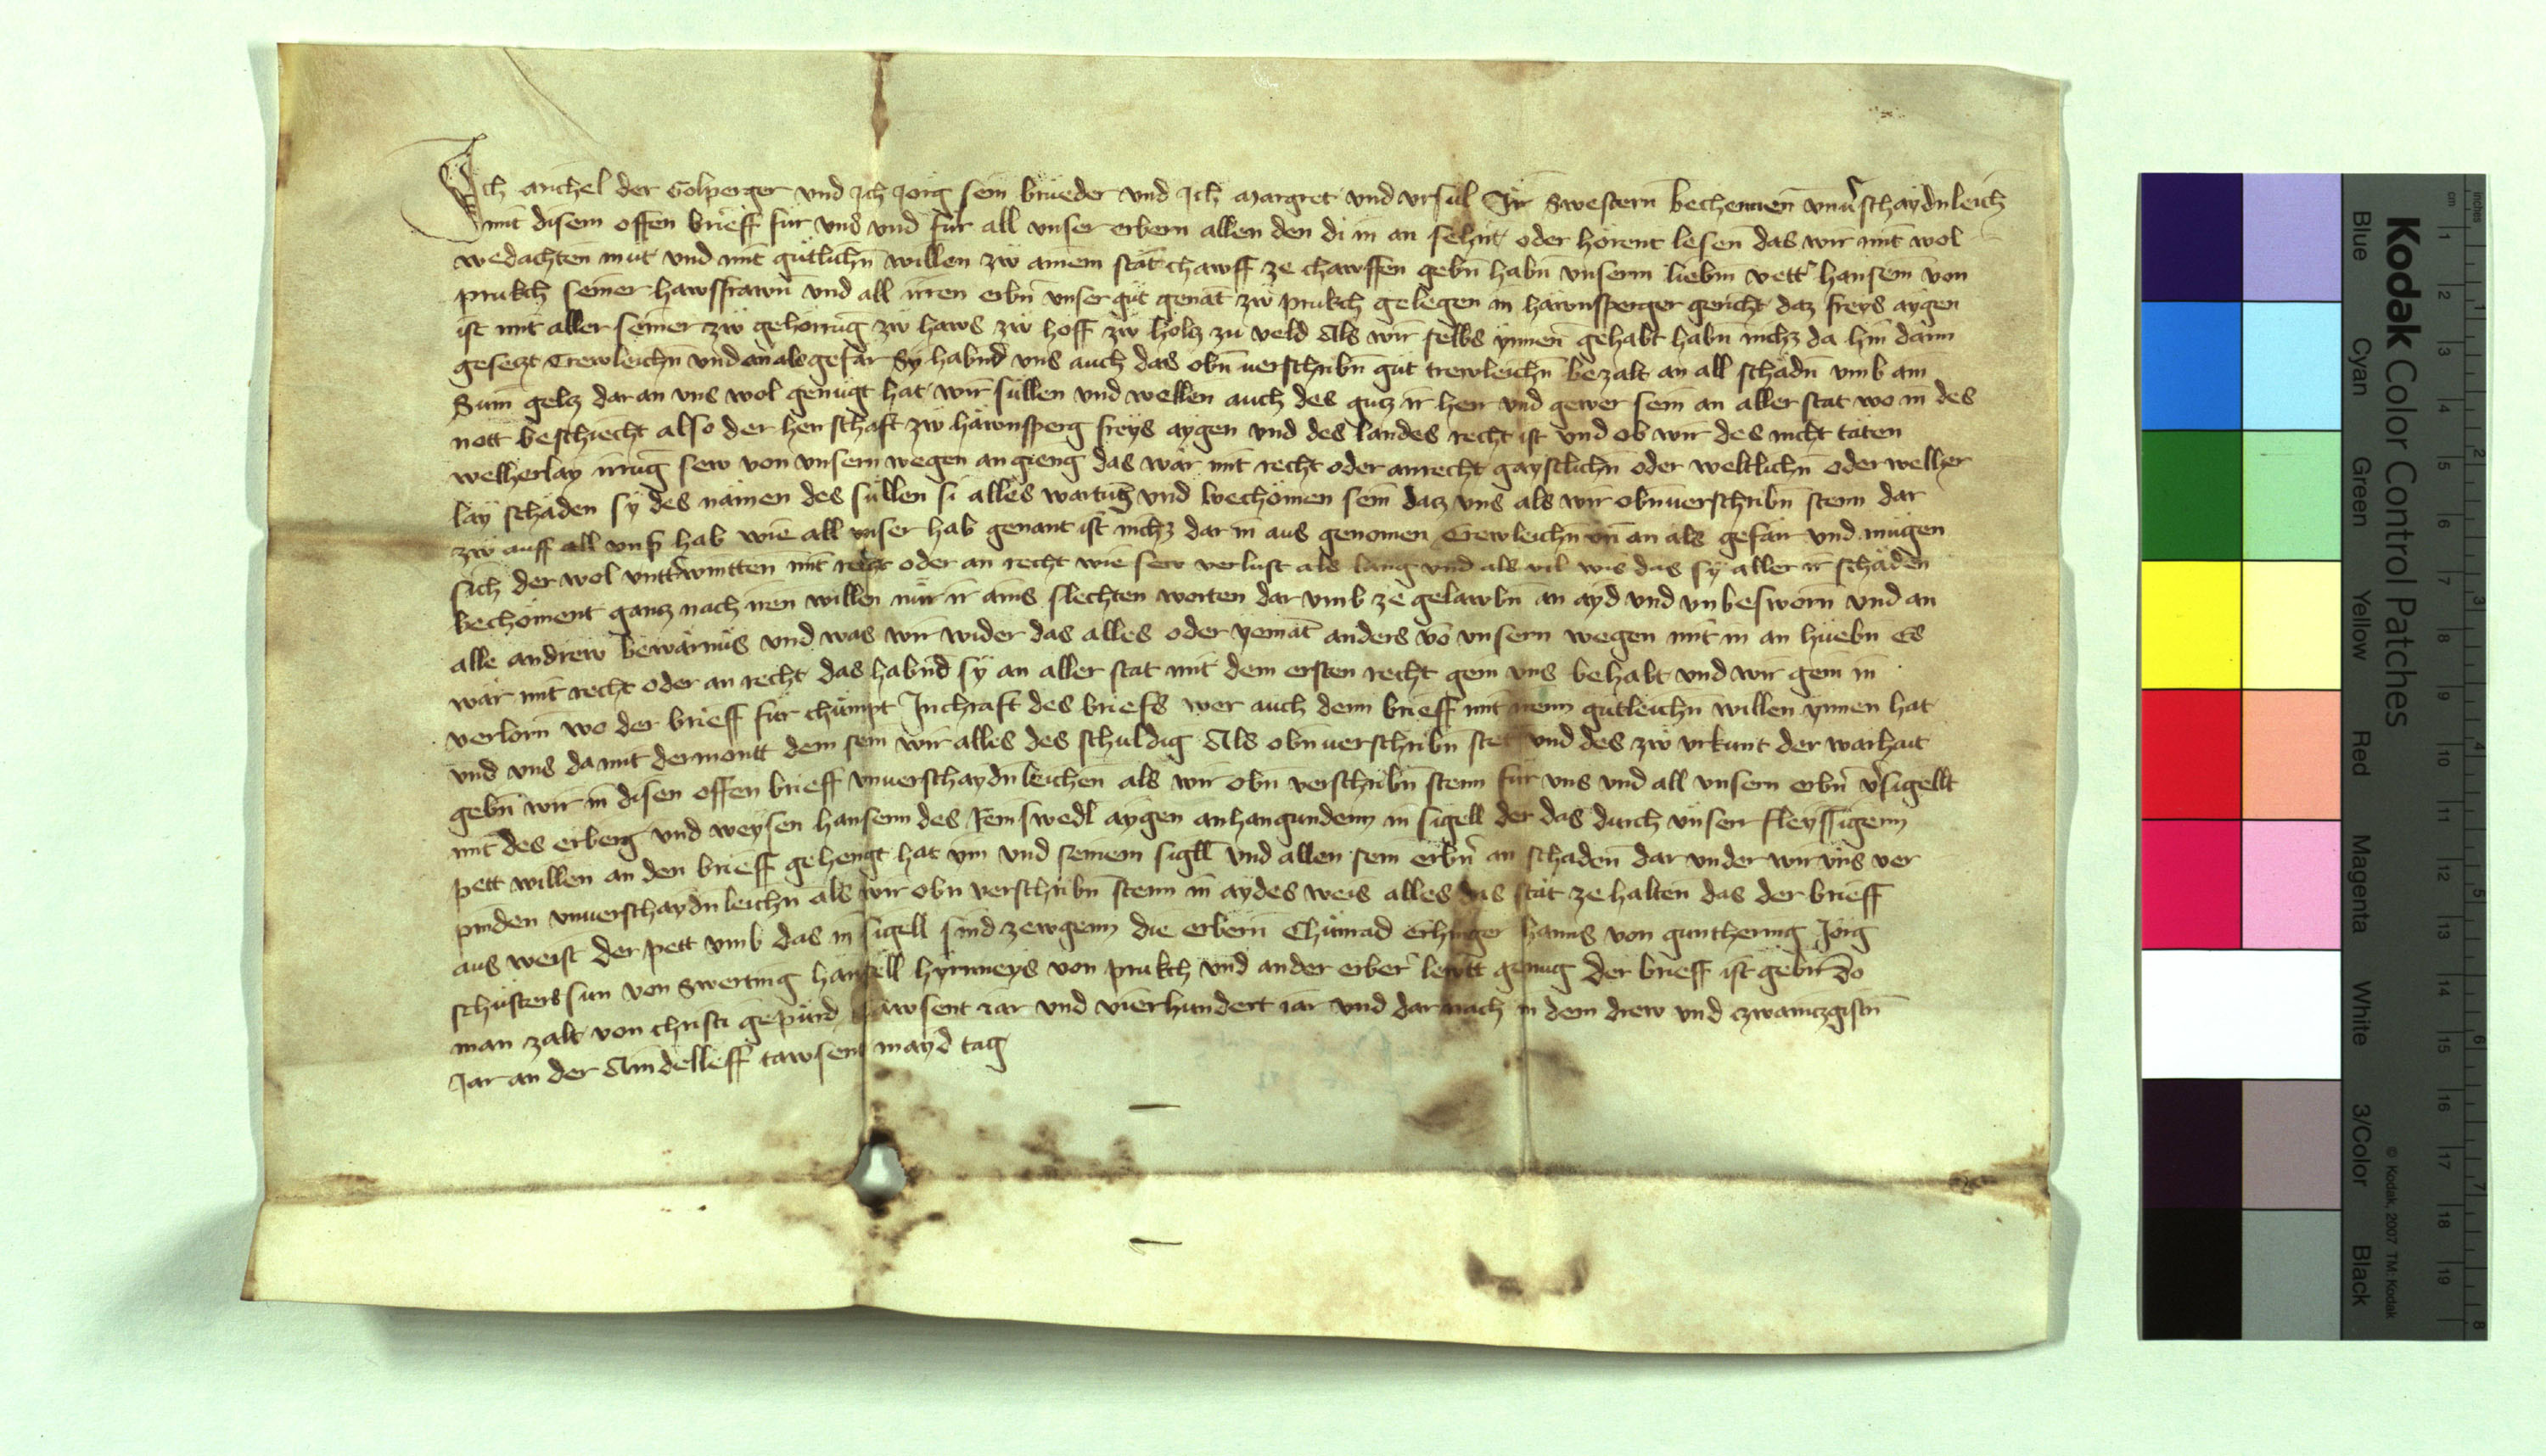 Ich michel der Golperger vnd Ich Jorig sein brueder vnd Ich Margret vnd vrsul Ir Swestern bechennen vnuerschaydnleich
mit disem offen brieff für vns vnd für all vnser erbern allen den di in an sehnt oder hörent lesen das wir mit wol
wedachten mut vnd mit gütlichn willen zw ainem stät chawff ze chawffen gebn habn vnserm liebm vett hansem von
prukch seiner hawsfrawn vnd all irren erbn vnser gut genat zw prukch gelegen in hawnsperger gericht daz freys aygen
ist mit aller seiner zw gehörrug zw haws zw hoff zw holcz zu veld Als wir selbs ynnen gehabt habn nichz da hin dann
gesetzt Trewleichn vnd an als gefar Sy habnd vns auch das obn uerschribn gut trewleichn bezalt an all schadn vmb ain
Sum gelcz dar an vns wol genügt hat wir süllen vnd wellen auch des gutz ir herr vnd gewer sein an aller stat wo in des
nott beschiecht also der herschaft zw hawnsperg freys aygen vnd des landes recht ist vnd ob wir des nicht täten
welherlay irrug sew von vnsern wegen an gieng das wär mit recht oder anrecht gaystlichn oder weltlichn oder welher
lay schäden sy des nämen des süllen si alles wartug vnd wechömen sein daz vns als wir obnuerschribn stenn dar
zw auff all vnser hab wie all vnser hab genant ist nichz dar in aus genomen Trewleichn vn an als gefar vnd mügen
sich der wol vntterwintten mit recht oder an recht wie sew verlust als lang vnd als vil wis das sy aller ir schäden
bechöment ganz nach iren willen nür ir ains slechten worten dar vmb ze gelawbn an ayd vnd vnbesworn vnd an
alle andrew bewärnüs vnd was wir wider das alles oder yemat anders vo vnsern wegen mit in an hüebn Es
wär mit recht oder an recht das habnd sy an aller stat mit dem ersten recht gein vns behabt vnd wir gein in
verlorn wo der brieff für chümpt In chraft des briefs wer auch denn brieff mit irenn gutleichn willen ynnen hat
vnd vns da mit dermontt dem sein wir alles des schuldig Als obnuerschribn stet vnd des zw vrkunt der warhait
gebn wir in disen offen brieff vnuerschaydnleichen als wir obn verschribn stenn für vns vnd all vnsern erbn versigellt
mit des erberg vnd weysen hansenn des aygen anhangundem in sigell der das durch vnsers fleyssigenn
pett willen an den brieff gehengt hat ym vnd seinem sigll vnd allen sein erbn an schaden dar vnder wir vns ver
pinden vnuerschaydnleichn als wir obn verschribn stenn in aydes weis alles das stät ze halten das der brieff
aus weist der pett vmb das in sigell sind zewgenn die erbern Chünrad hanns von gunthering Jörig
schusters sun von Swerting hänsell hyrnneys von prukch vnd ander erber lewtt genug der brieff ist gebn Do
man zalt von christi gepürd tawsent iar vnd vierhundert iar vnd dar nach in dem drew vnd zwainczgistn
Jar an der Aindelleff tawsent mayd tag
Kodak Color Control Patches
Blue Cyan Green Yellow Red Magenta White 3/Color Black
© Kodak, 2007 TM: Kodak
cm 1 2 3 4 5 6 7 8 9 10 11 12 13 14 15 16 17 18 19
inches 1 2 3 4 5 6 7 8